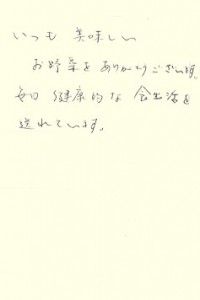 いつも 美味しい
お野菜をありがとうございます。
毎日 健康的な 食生活を
送れています。